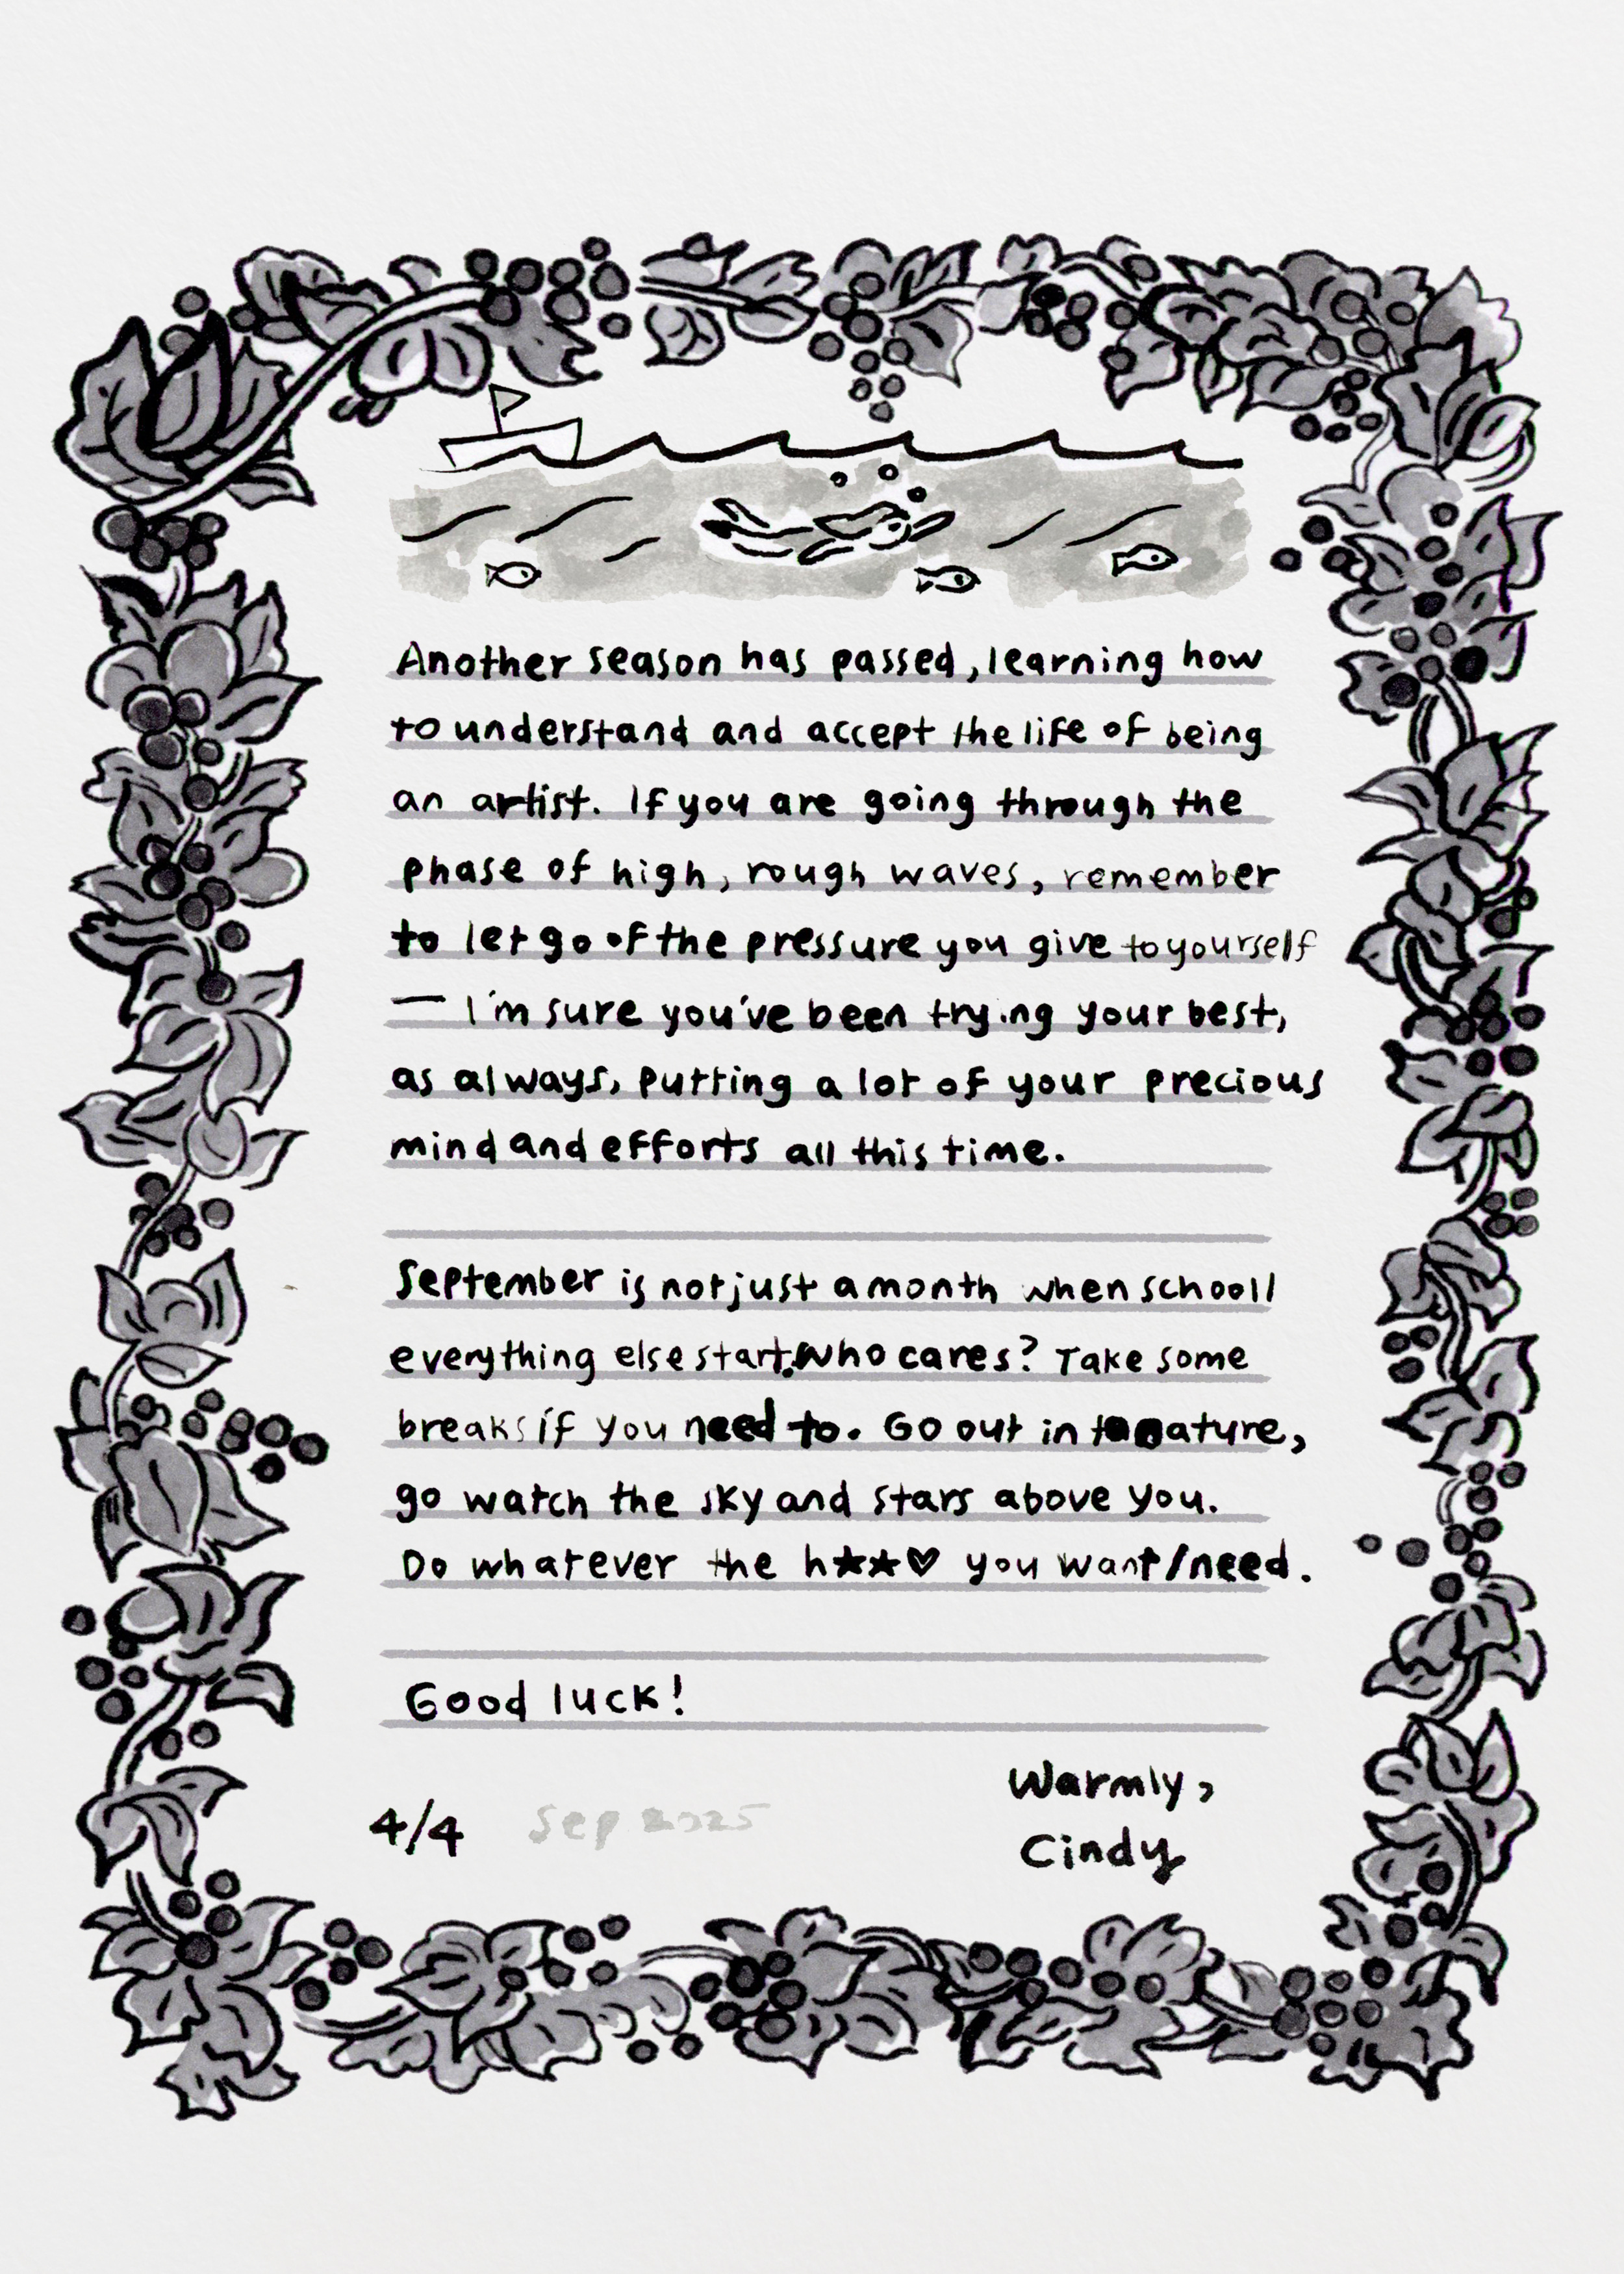 Another season has passed, learning how
to understand and accept the life of being
an artist. If you are going through the
phase of high, rough waves, remember
to let go of the pressure you give to yourself
— I'm sure you've been trying your best,
as always, putting a lot of your precious
mind and efforts all this time.
September is not just a month when school/
everything else start. Who cares? Take some
breaks if you need to. Go out in nature,
go watch the sky and stars above you.
Do whatever the h★★♡ you want/need.
Good luck!
Warmly,
4/4 Sep 2025
Cindy